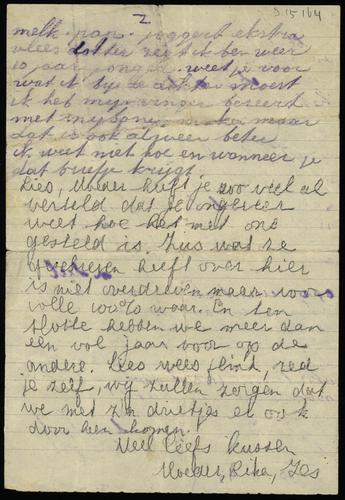 2
D 15164
melk. pap. joggert ekstra
vlees dokter zegt ik ben weer
10 jaar jonger weet je voor
wat ik bij de dokter moest
ik heb mijn vinger bezeert
met mijn maar
dat is ook alweer beter
ik weet niet hoe en wanneer je
dat briefje krijgt.
Lies, Moeder heeft je zoo veel al
verteld dat je ongeveer
weet hoe het met ons
gesteld is. Zus wat ze
geschreven heeft over hier
is niet overdreven maar voor
volle 100% waar. En ten
slotte hebben we meer dan
een vol jaar voor op de
andere. Lies wees flink, red
je zelf, wij zullen zorgen dat
we met z'n drietjes er ook
door heen komen.
Veel liefs kussen
Moeder, Rika, Jes